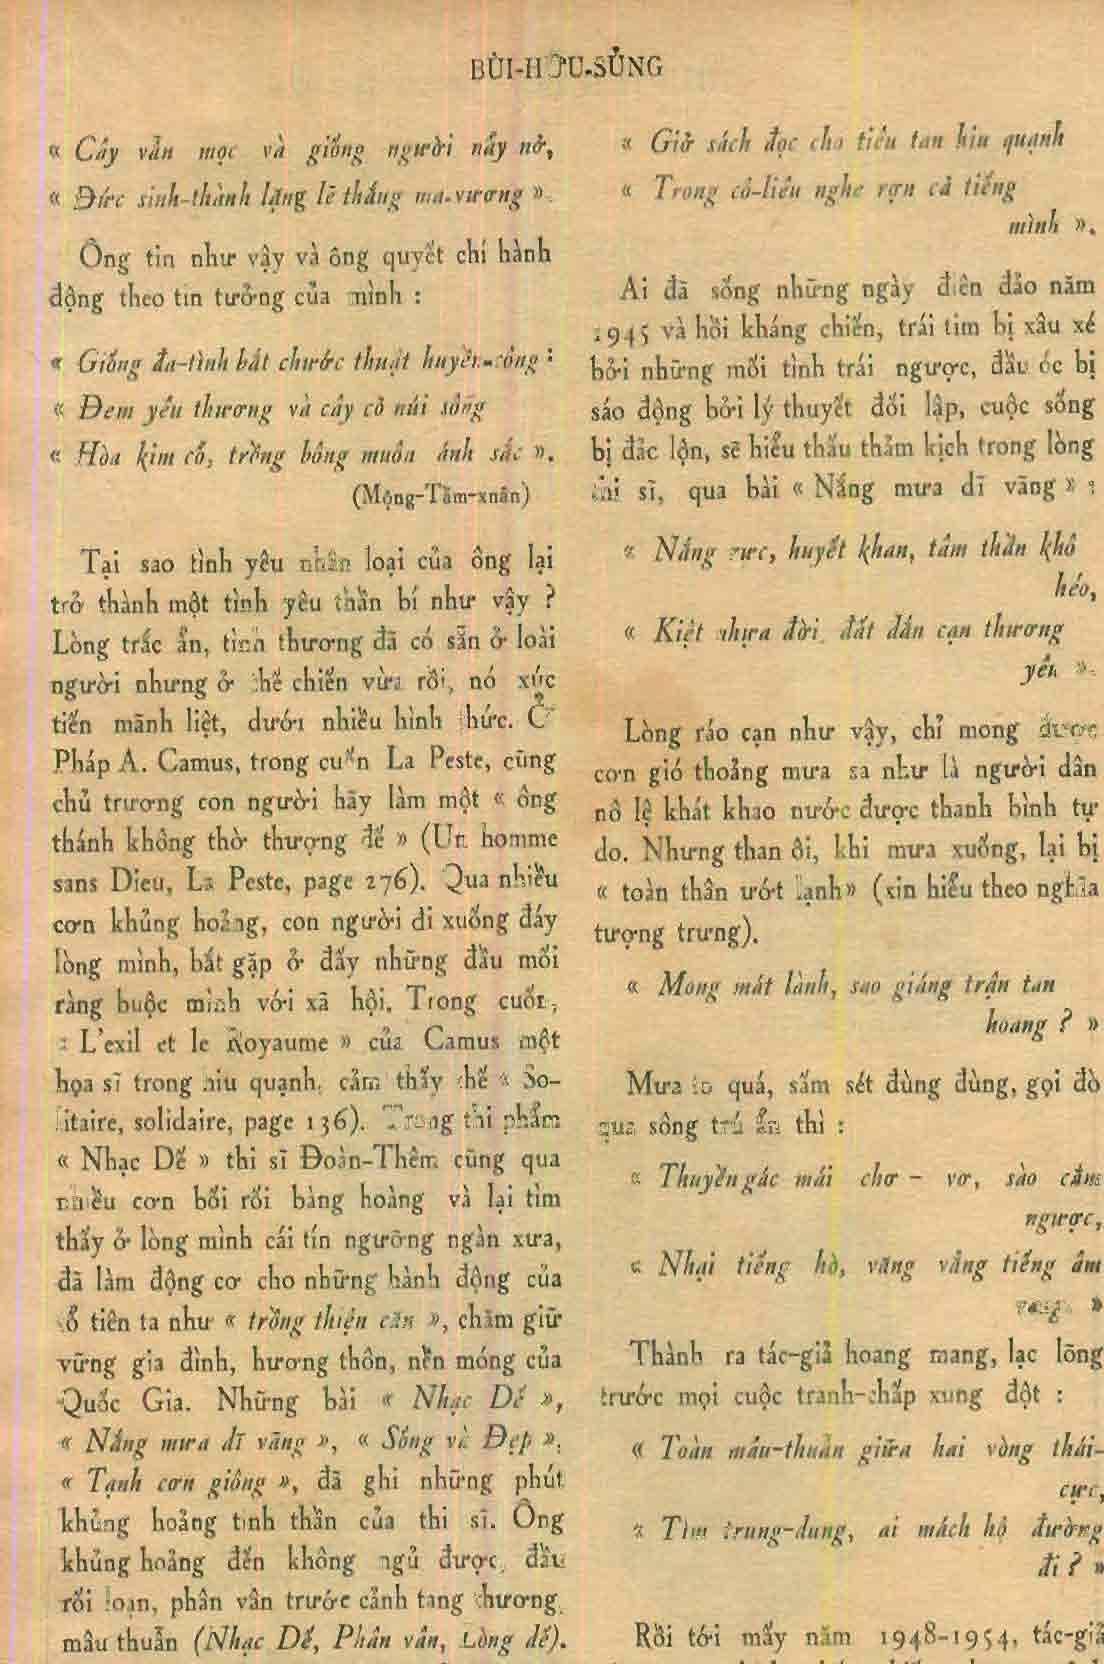 BÙI-HỮU-SỦNG
« Cây vẫn mọc và giống người nẩy nở,
« Đức sinh-thành lặng lẽ thắng ma-vương ».
Ông tin như vậy và ông quyết chí hành
động theo tin tưởng của mình :
« Giống đa-tình bắt chước thuật huyền-công :
« Đem yêu thương và cây cỏ núi sông
« Hòa kim cổ, trồng bông muôn ánh sắc ».
(Mộng-Tầm-xuân)
Tại sao tình yêu nhân loại của ông lại
trở thành một tình yêu thần bí như vậy ?
Lòng trắc ẩn, tình thương đã có sẵn ở loài
người nhưng ở thế chiến vừa rồi, nó xúc
tiến mãnh liệt, dưới nhiều hình thức. Ở
Pháp A. Camus, trong cuốn La Peste, cũng
chủ trương con người hãy làm một « ông
thánh không thờ thượng đế » (Un homme
sans Dieu, La Peste, page 276). Qua nhiều
cơn khủng hoảng, con người đi xuống đáy
lòng mình, bắt gặp ở đấy những đầu mối
ràng buộc mình với xã hội. Trong cuốn,
« L'exil et le Royaume » của Camus một
họa sĩ trong hiu quạnh, cảm thấy thế « So-
litaire, solidaire, page 136). Trong thi phẩm
« Nhạc Dế » thi sĩ Đoàn-Thêm cũng qua
nhiều cơn bối rối bàng hoàng và lại tìm
thấy ở lòng mình cái tín ngưỡng ngàn xưa,
đã làm động cơ cho những hành động của
tổ tiên ta như « trồng thiện căn », chăm giữ
vững gia đình, hương thôn, nền móng của
Quốc Gia. Những bài « Nhạc Dế »,
« Nắng mưa dĩ vãng », « Sống và Đẹp »,
« Tạnh cơn giông », đã ghi những phút
khủng hoảng tinh thần của thi sĩ. Ông
khủng hoảng đến không ngủ được, đầu
rối loạn, phân vân trước cảnh tang thương,
mâu thuẫn (Nhạc Dế, Phân vân, Lòng dế).
« Giở sách đọc cho tiêu tan hiu quạnh
« Trong cô-liêu nghe rợn cả tiếng
mình ».
Ai đã sống những ngày điên đảo năm
1945 và hồi kháng chiến, trái tim bị xâu xé
bởi những mối tình trái ngược, đầu óc bị
sáo động bởi lý thuyết đối lập, cuộc sống
bị đảc lộn, sẽ hiểu thấu thảm kịch trong lòng
thi sĩ, qua bài « Nắng mưa dĩ vãng » :
« Nắng rực, huyết khan, tâm thần khô
héo,
« Kiệt nhựa đời, đất dần cạn thương
yêu ».
Lòng ráo cạn như vậy, chỉ mong được
cơn gió thoảng mưa sa như là người dân
nô lệ khát khao nước được thanh bình tự
do. Nhưng than ôi, khi mưa xuống, lại bị
« toàn thân ướt lạnh» (xin hiểu theo nghĩa
tượng trưng).
« Mong mát lành, sao giáng trận tan
hoang ? »
Mưa to quá, sấm sét đùng đùng, gọi đò
qua sông trú ẩn thì :
« Thuyền gác mái chơ - vơ, sào cắm
ngược,
« Nhại tiếng hò, văng vẳng tiếng âm
vang. »
Thành ra tác-giả hoang mang, lạc lõng
trước mọi cuộc tranh-chấp xung đột :
« Toàn mâu-thuẫn giữa hai vòng thái-
cực,
« Tìm trung-dung, ai mách hộ đường
đi ? »
Rồi tới mấy năm 1948-1954, tác-giả